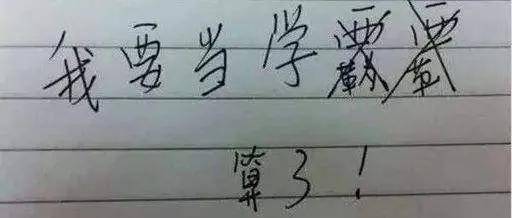 我要当学
算了！